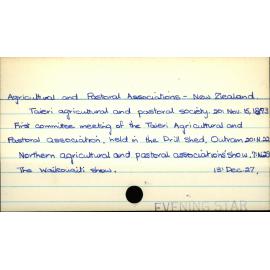 Agricultural and Pastoral Associations - New Zealand.
Taieri agricultural and pastoral society. 20: Nov. 15, 1873
First committee meeting of the Taieri Agricultural and
Pastoral Association, held in the Drill Shed, Outram. 20: N.22
Northern agricultural and pastoral associations' show.
The Waikouaiti show. 13: Dec. 27,
EVENING STAR